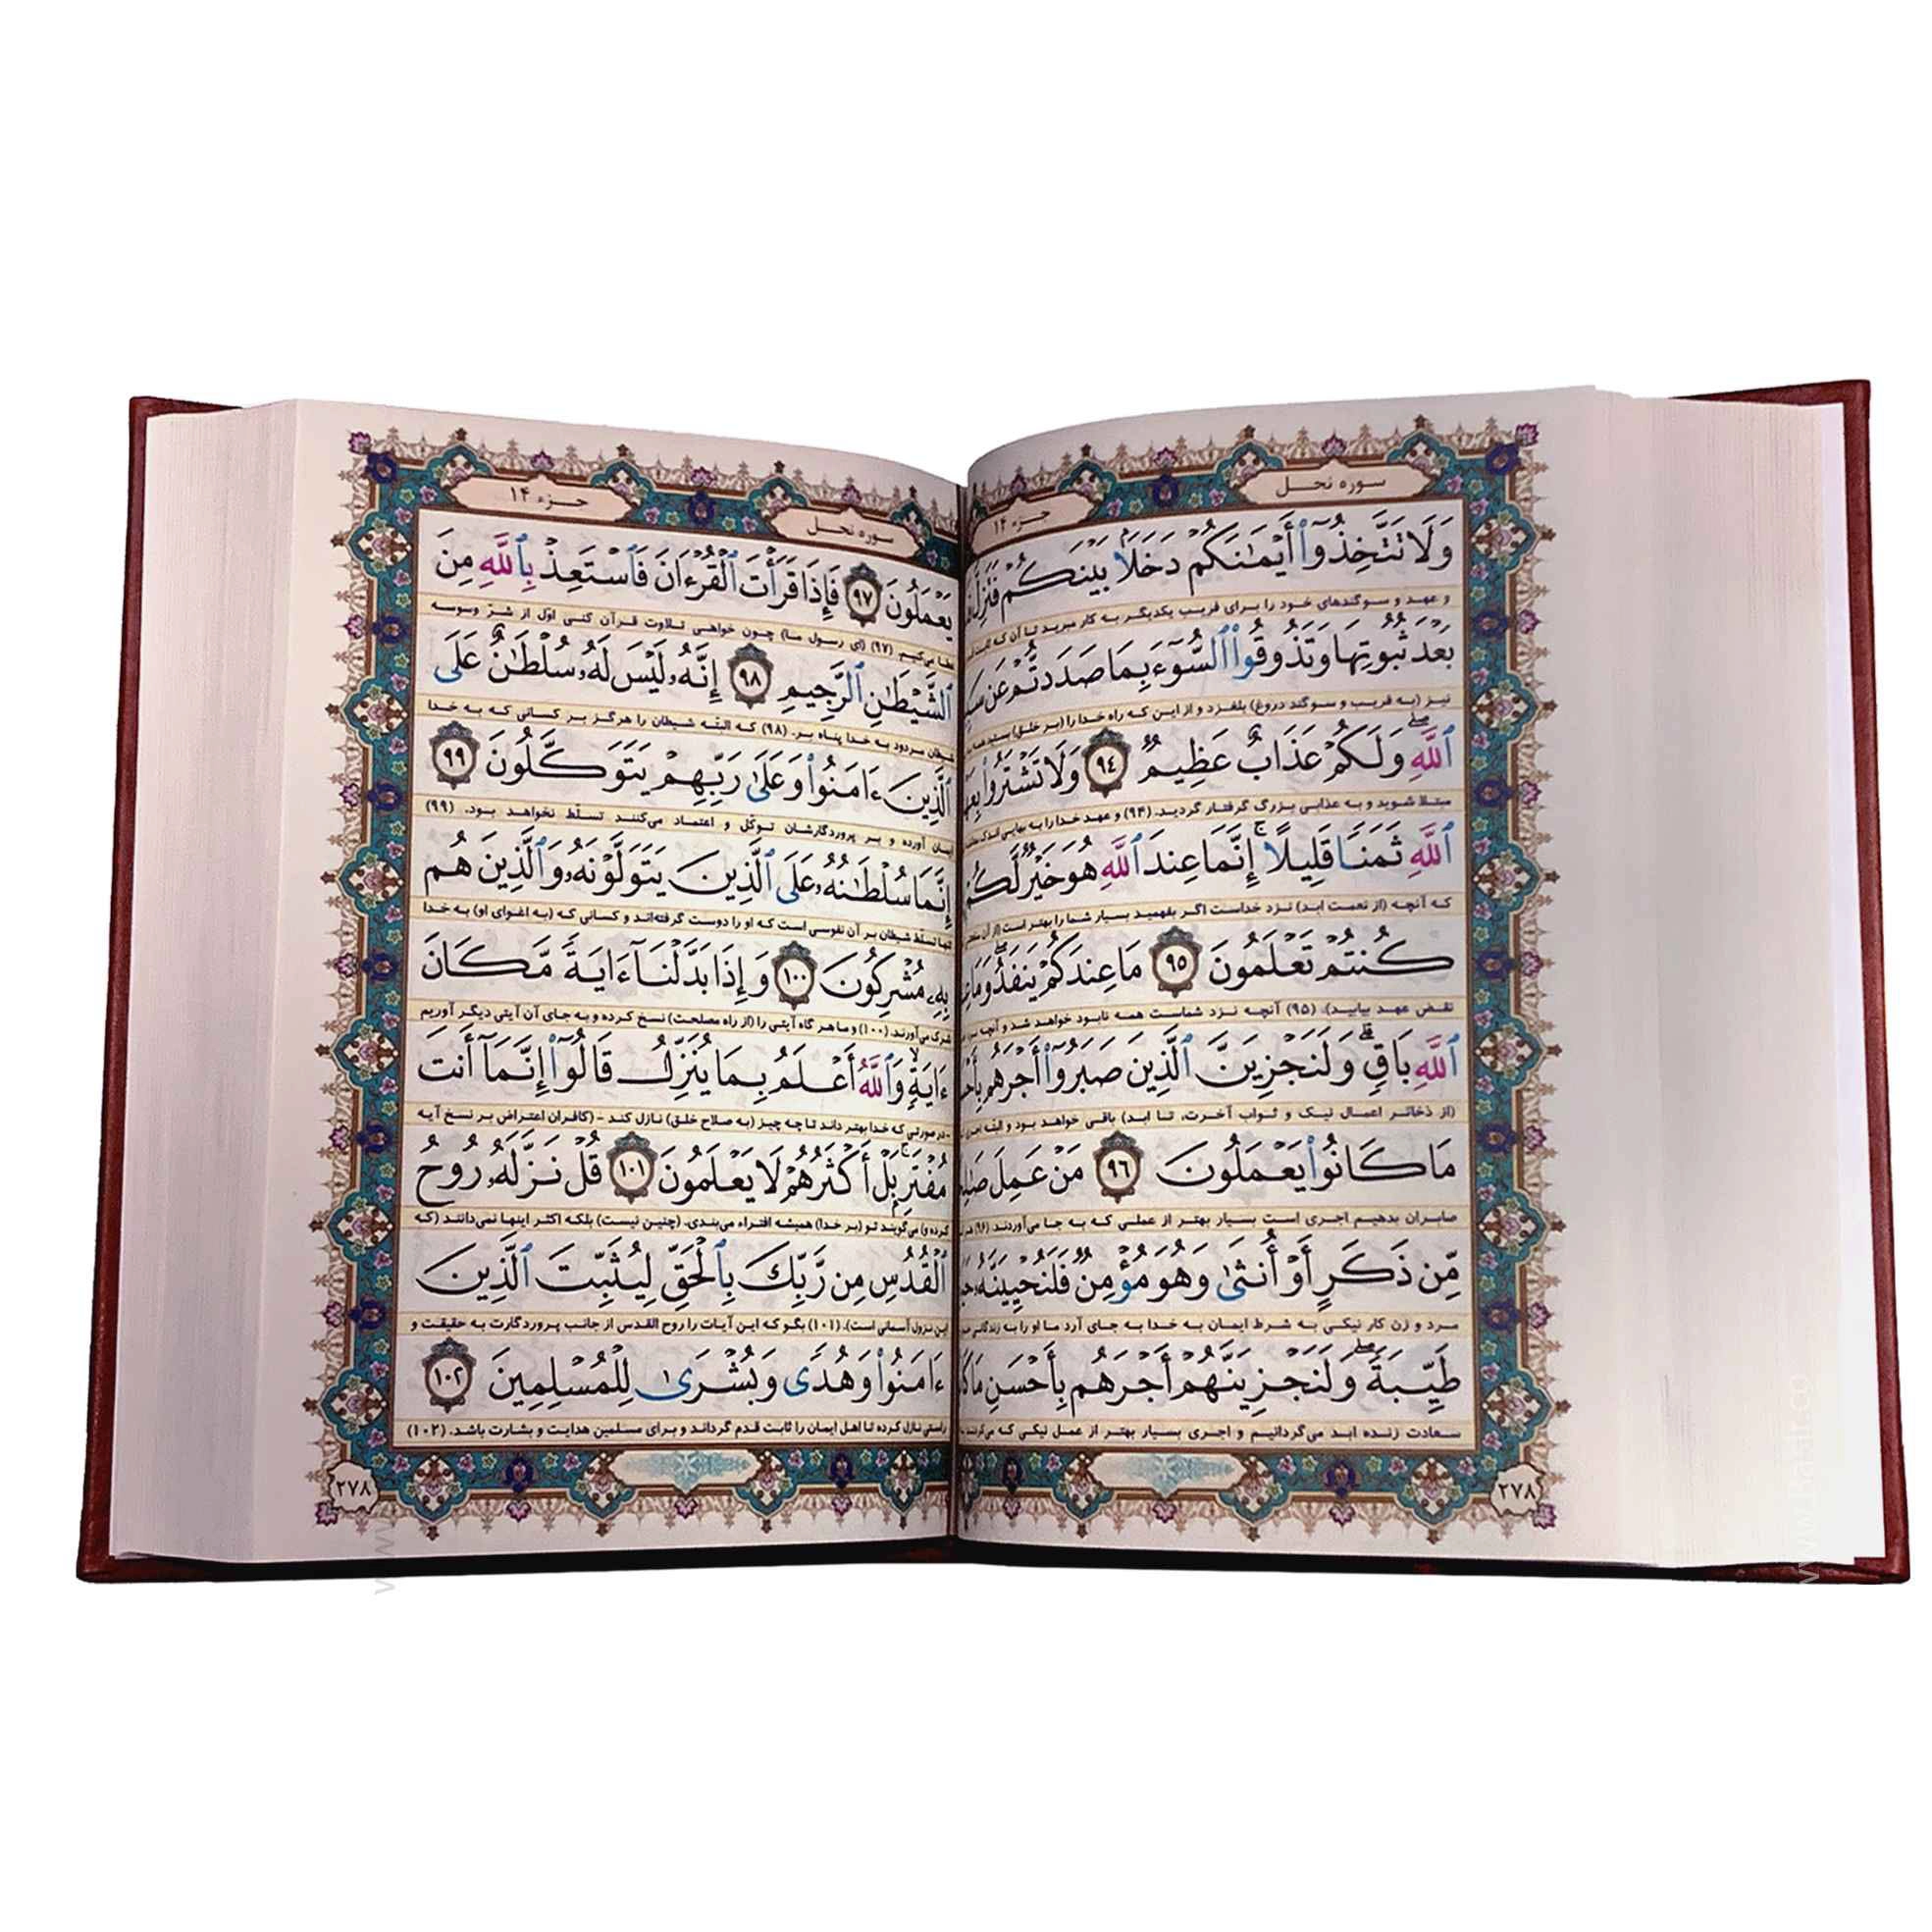 سوره نحل
جزء ۱۴
وَلَا تَتَّخِذُوٓا۟ أَيْمَـٰنَكُمْ دَخَلًۢا بَيْنَكُمْ فَتَزِلَّ
و عهد و سوگندهای خود را برای فریب یکدیگر به کار مبرید تا آن که
بَعْدَ ثُبُوتِهَا وَتَذُوقُوا۟ ٱلسُّوٓءَ بِمَا صَدَدتُّمْ عَن
نیز (به فریب و سوگند دروغ) بلغزد و از این که راه خدا را (بر خلق) بستید همه
ٱللَّهِ ۖ وَلَكُمْ عَذَابٌ عَظِيمٌ ﴿٩٤﴾ وَلَا تَشْتَرُوا۟
مبتلا شوید و به عذابی بزرگ گرفتار گردید. (۹۴) و عهد خدا را به بهایی اندک
ٱللَّهِ ثَمَنًا قَلِيلًا ۚ إِنَّمَا عِندَ ٱللَّهِ هُوَ خَيْرٌ لَّكُمْ
که آنچه (از نعمت ابد) نزد خداست اگر بفهمید بسیار شما را بهتر است (از آن
كُنتُمْ تَعْلَمُونَ ﴿٩٥﴾ مَا عِندَكُمْ يَنفَدُ ۖ وَمَا
نقض عهد بیابید). (۹۵) آنچه نزد شماست همه نابود خواهد شد و آنچه
ٱللَّهِ بَاقٍ ۗ وَلَنَجْزِيَنَّ ٱلَّذِينَ صَبَرُوٓا۟ أَجْرَهُم
(از ذخائر اعمال نیک و ثواب آخرت، تا ابد) باقی خواهد بود و البته اجری
مَا كَانُوا۟ يَعْمَلُونَ ﴿٩٦﴾ مَنْ عَمِلَ
صابران بدهیم اجری است بسیار بهتر از عملی که به جا می‌آوردند. (۹۶)
مِّن ذَكَرٍ أَوْ أُنثَىٰ وَهُوَ مُؤْمِنٌ فَلَنُحْيِيَنَّهُۥ
مرد و زن کار نیکی به شرط ایمان به خدا به جای آرد ما او را به زندگانی
طَيِّبَةً ۖ وَلَنَجْزِيَنَّهُمْ أَجْرَهُم بِأَحْسَنِ مَا
سعادت زنده ابد می‌گردانیم و اجری بسیار بهتر از عمل نیکی که می‌کردند
۲۷۸
سوره نحل
جزء ۱۴
يَعْمَلُونَ ﴿٩٧﴾ فَإِذَا قَرَأْتَ ٱلْقُرْءَانَ فَٱسْتَعِذْ بِٱللَّهِ مِنَ
عطا می‌کنیم. (۹۷) (ای رسول ما) چون خواهی تلاوت قرآن کنی اول از شرّ وسوسه
ٱلشَّيْطَـٰنِ ٱلرَّجِيمِ ﴿٩٨﴾ إِنَّهُۥ لَيْسَ لَهُۥ سُلْطَـٰنٌ عَلَى
شیطان مردود به خدا پناه بر. (۹۸) که البتّه شیطان را هرگز بر کسانی که به خدا
ٱلَّذِينَ ءَامَنُوا۟ وَعَلَىٰ رَبِّهِمْ يَتَوَكَّلُونَ ﴿٩٩﴾
ایمان آورده و بر پروردگارشان توکّل و اعتماد می‌کنند تسلّط نخواهد بود. (۹۹)
إِنَّمَا سُلْطَـٰنُهُۥ عَلَى ٱلَّذِينَ يَتَوَلَّوْنَهُۥ وَٱلَّذِينَ هُم
تنها تسلّط شیطان بر آن نفوسی است که او را دوست گرفته‌اند و کسانی که (به اغوای او) به خدا
بِهِۦ مُشْرِكُونَ ﴿١٠٠﴾ وَإِذَا بَدَّلْنَآ ءَايَةً مَّكَانَ
شرک می‌آورند. (۱۰۰) و ما هر گاه آیتی را (از راه مصلحت) نسخ کرده و به جای آن آیتی دیگر آوریم
ءَايَةٍ ۙ وَٱللَّهُ أَعْلَمُ بِمَا يُنَزِّلُ قَالُوٓا۟ إِنَّمَآ أَنتَ
- در صورتی که خدا بهتر داند تا چه چیز (به صلاح خلق) نازل کند - (کافران اعتراض بر نسخ آیه
مُفْتَرٍۭ ۚ بَلْ أَكْثَرُهُمْ لَا يَعْلَمُونَ ﴿١٠١﴾ قُلْ نَزَّلَهُۥ رُوحُ
کرده و) می‌گویند تو (بر خدا) همیشه افتراء می‌بندی. (چنین نیست) بلکه اکثر اینها نمی‌دانند (که
ٱلْقُدُسِ مِن رَّبِّكَ بِٱلْحَقِّ لِيُثَبِّتَ ٱلَّذِينَ
این نزول آسمانی است). (۱۰۱) بگو که این آیات را روح القدس از جانب پروردگارت به حقیقت و
ءَامَنُوا۟ وَهُدًى وَبُشْرَىٰ لِلْمُسْلِمِينَ ﴿١٠٢﴾
راستی نازل کرده تا اهل ایمان را ثابت قدم گرداند و برای مسلمین هدایت و بشارت باشد. (۱۰۲)
۲۷۸